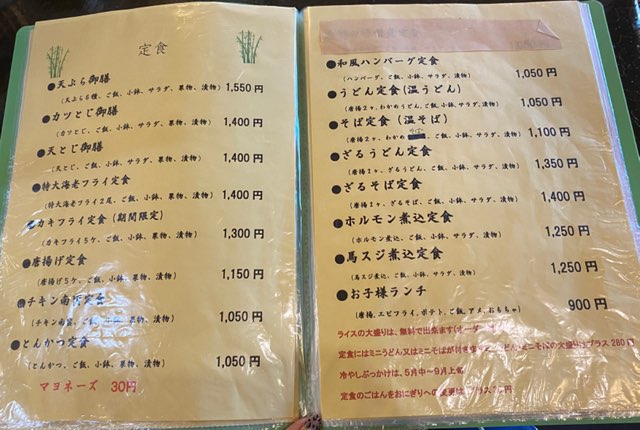 定食
●天ぷら御膳
(天ぷら6種、ご飯、小鉢、サラダ、果物、漬物) 1,550円
●カツとじ御膳
(カツとじ、ご飯、小鉢、サラダ、果物、漬物) 1,400円
●天とじ御膳
(天とじ、ご飯、小鉢、サラダ、果物、漬物) 1,400円
●特大海老フライ定食
(特大海老フライ2尾、ご飯、小鉢、果物、漬物) 1,400円
●カキフライ定食(期間限定)
(カキフライ5ケ、ご飯、小鉢、果物、漬物) 1,300円
●唐揚げ定食
(唐揚げ5ケ、ご飯、小鉢、果物、漬物) 1,150円
●チキン南蛮定食
(チキン南蛮、ご飯、小鉢、果物、漬物) 1,050円
●とんかつ定食
(とんかつ、ご飯、小鉢、果物、漬物) 1,050円
マヨネーズ 30円
●和風ハンバーグ定食
(ハンバーグ、ご飯、小鉢、サラダ、漬物) 1,050円
●うどん定食(温うどん)
(唐揚2ヶ、わかめうどん、ご飯、小鉢、サラダ、漬物) 1,050円
●そば定食(温そば)
(唐揚2ヶ、わかめそば、ご飯、小鉢、サラダ、漬物) 1,100円
●ざるうどん定食
(唐揚2ヶ、ざるうどん、ご飯、小鉢、サラダ、漬物) 1,350円
●ざるそば定食
(唐揚2ヶ、ざるそば、ご飯、小鉢、サラダ、漬物) 1,400円
●ホルモン煮込定食
(ホルモン煮込、ご飯、小鉢、サラダ、漬物) 1,250円
●馬スジ煮込定食
(馬スジ煮込、ご飯、小鉢、サラダ、漬物) 1,250円
●お子様ランチ
(唐揚、エビフライ、ポテト、ご飯、アメ、おもちゃ) 900円
ライスの大盛りは、無料で出来ます(オーダー
定食にはミニうどん又はミニそばが付き ミニそばの大盛りはプラス280円
冷やしぶっかけは、5月中〜9月上旬
定食のごはんをおにぎりへの変更は プラス 円